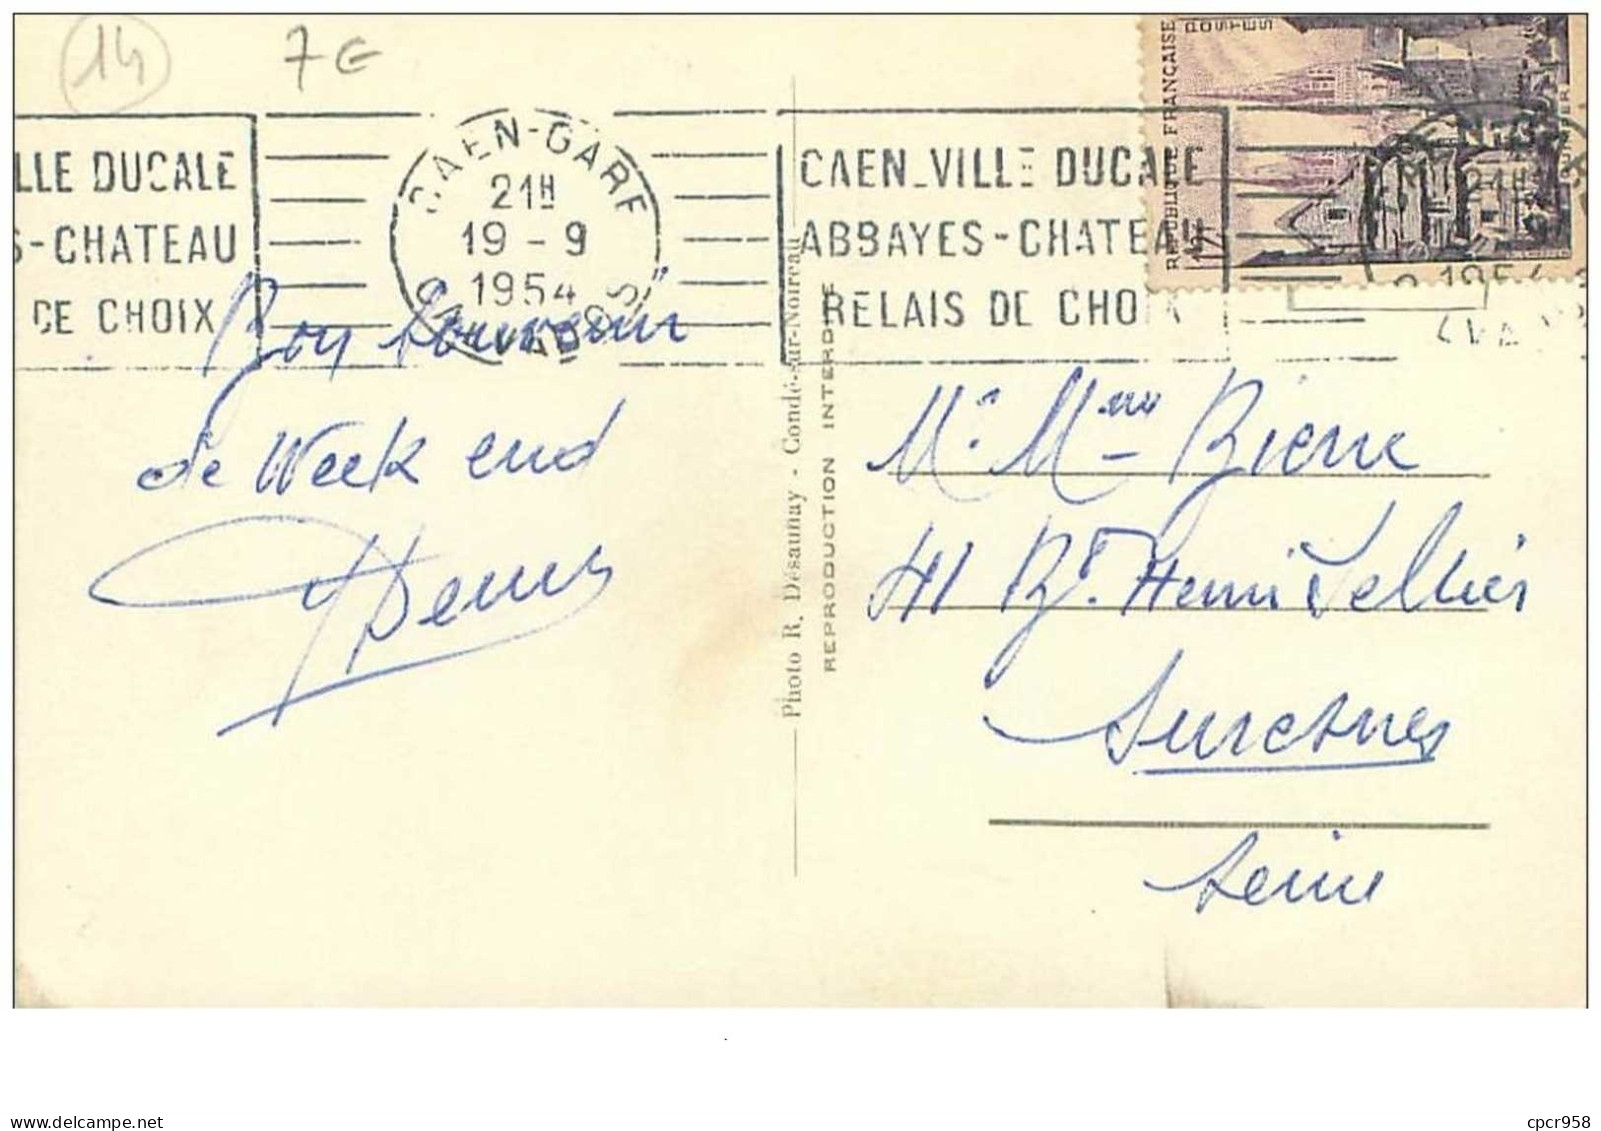 14
7€
LLE DUCALE
S-CHATEAU
DE CHOIX
CAEN-GARE
21H
19 - 9
1954
CALVADOS
CAEN_VILLE DUCALE
ABBAYES-CHATEAU
RELAIS DE CHOIX
REPUBLIQUE FRANÇAISE
POSTES
12F
1954
Bon souvenir
de Week end
Denis
Photo R. Désaunay - Condé-sur-Noireau
REPRODUCTION INTERDITE
Mr. Mme Bierre
41 Bd. Henri Sellier
Suresnes
Seine
delcampe.net
cpcr958